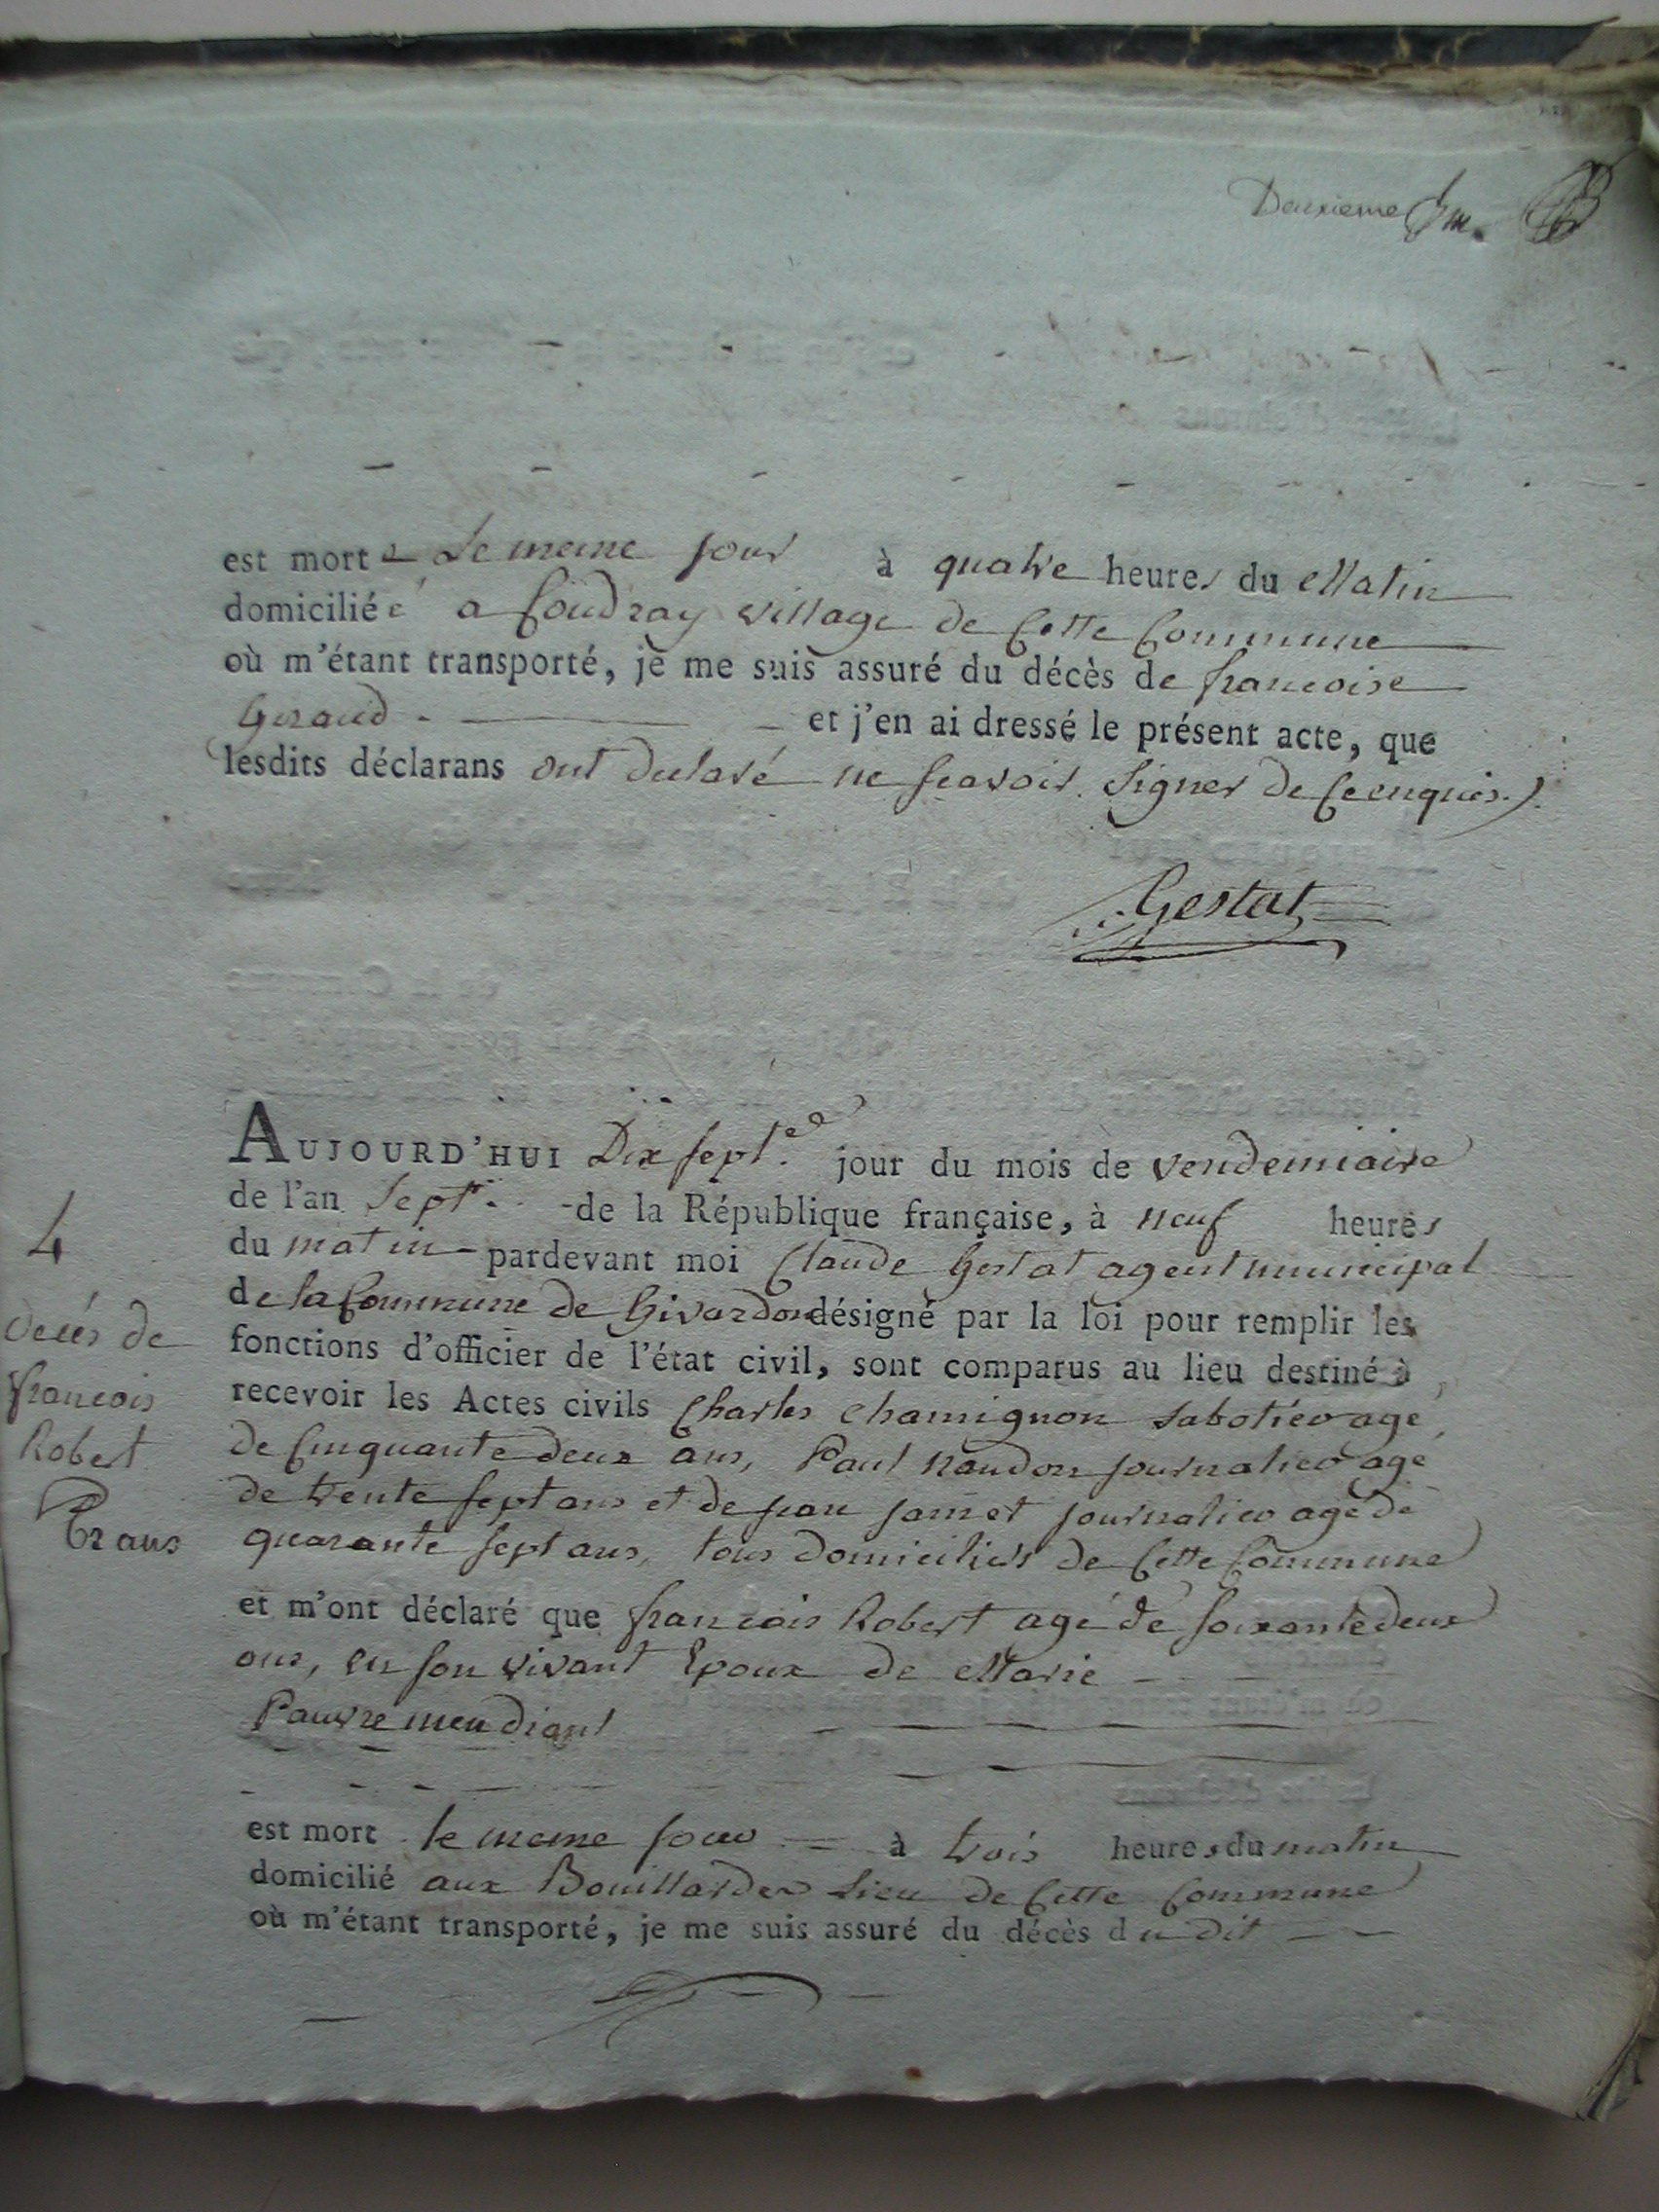 Deuxieme
est morte Le meme jour à quatre heures du Matin
domiciliée a Coudray village de Cette Commune
où m'étant transporté, je me suis assuré du décès de francoise
Geraud - et j'en ai dressé le présent acte, que
lesdits déclarans ont declaré ne scavoir signer de ce enquis.
Gestat
AUJOURD'HUI Dix sept.e jour du mois de vendemiaire
de l'an Sept. - de la République française, à neuf heures
du matin - pardevant moi Claude Gestat agent municipal
de la Commune de Givardon désigné par la loi pour remplir les
fonctions d'officier de l'état civil, sont comparus au lieu destiné à
recevoir les Actes civils Charles Chamignon sabotier age
de Cinquante deux ans, Paul Naudon journalier age
de trente sept ans et de jean jamet journalier agé de
quarante sept ans, tous domiciliés de Cette Commune
et m'ont déclaré que francois Robert agé de soixante deux
ans, en son vivant Epoux de Marie
Pauvre mendiant
est mort le meme jour à trois heures du matin
domicilié aux Bouillardes Lieu de Cette Commune
où m'étant transporté, je me suis assuré du décès du dit
4
Decés de
francois
Robert
62 ans